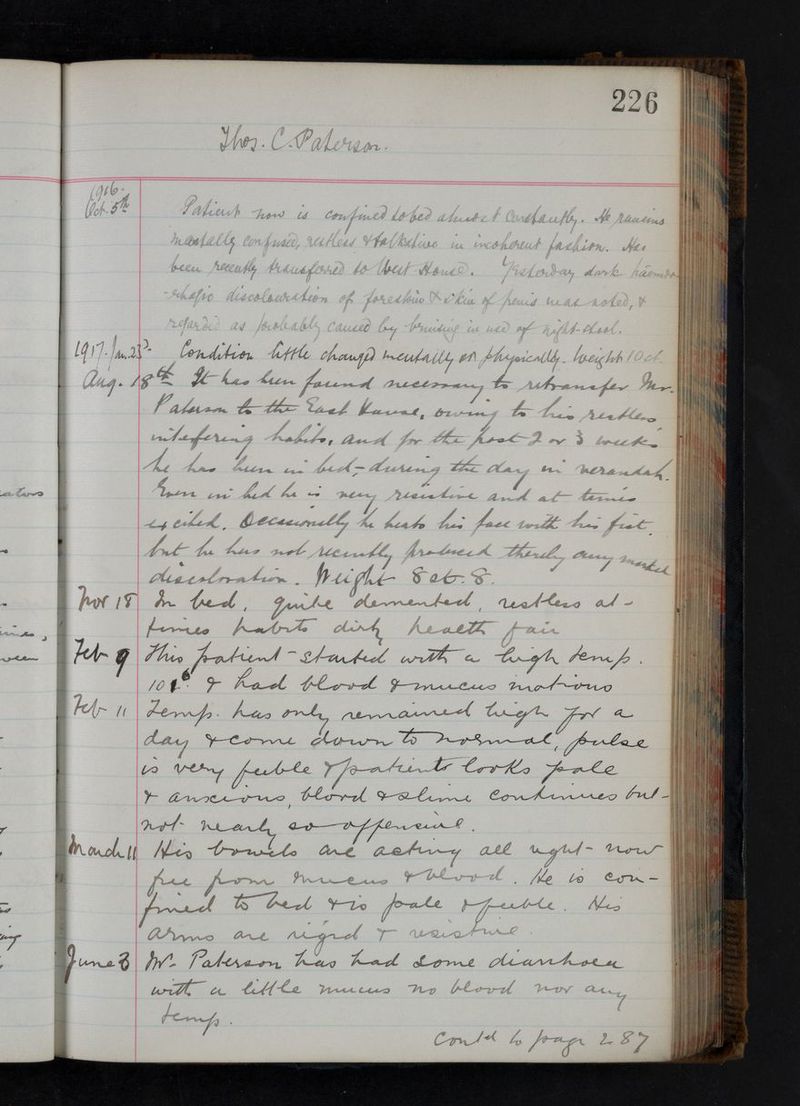 226
Thos. C. Paterson.
1916.
Oct. 5th Patient now is confined to bed almost constantly. He remains
mentally confused, restless & talkative in incoherent fashion. Has
been recently transferred to West House. Yesterday dark haemor-
-rhagic discolouration of foreskin & skin of penis was noted, &
regarded as probably caused by bruising in use of night-stool.
1917. Jan. 23d. Condition little changed mentally or physically. Weight 10 st.
Aug. 18th It has been found necessary to retransfer Mr.
Paterson to the East House, owing to his restless,
interfering habits, and for the past 2 or 3 weeks
he has been in bed - during the day in verandah.
Even in bed he is very resistive and at times
excited. Occasionally he beats his face with his fist,
but he has not recently produced thereby any marked
discoloration. Weight 8 st. 8.
Nov 18 In bed, quite demented, restless at
times habits dirty health fair
Feb 9 This patient started with a high temp.
& had blood & mucus motions
Feb 11 Temp. has only remained high for a
day & come down to normal, pulse
is very feeble & patient looks pale
& anxcious, blood & slime continues but
not nearly so offensive.
March 11 His bowels are acting all right now
free from mucus & blood. He is con-
fined to bed & is pale & feeble. His
arms are rigid & resistive.
June 3 Mr. Paterson has had some diarrhoea
with a little mucus no blood nor any
temp.
Contd to page 287